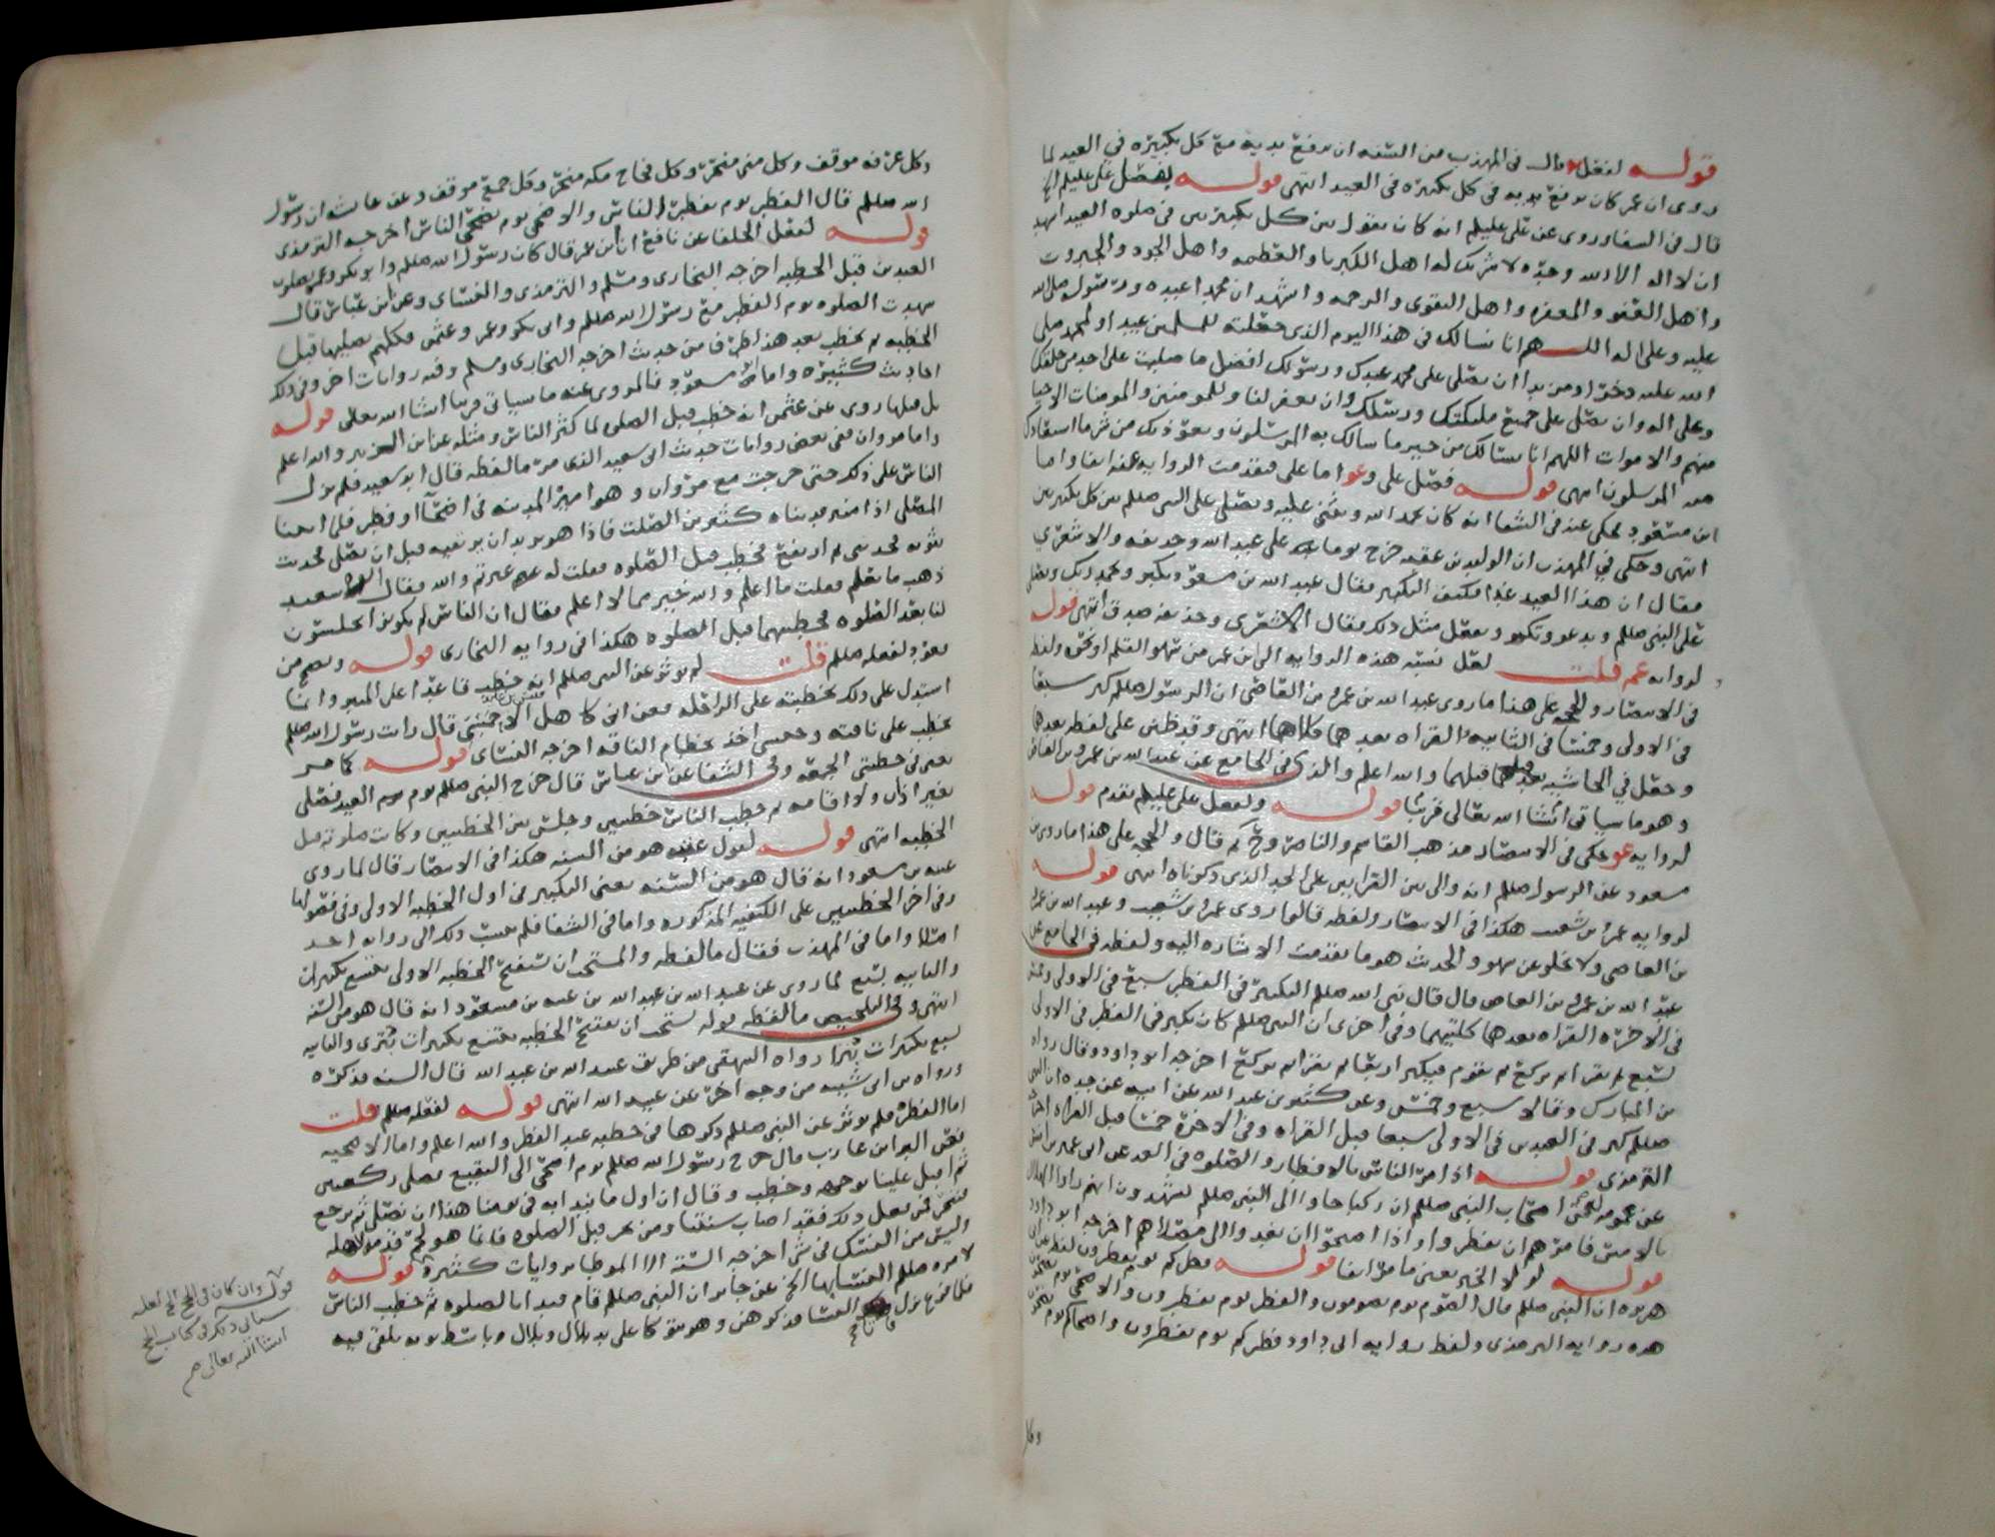 قوله لفعل قال فى المهذب من السنه ان يرفع يديه مع كل تكبيره في العيد لما
روى ان عمر كان يرفع يديه فى كل تكبيره فى العيد انتهى قوله لفعل على عليلم الخ
قال فى الشفا وروى عن على عليلم انه كان يقول بين كل تكبيرتين فى صلوه العيد اشهد
ان لا اله الا الله وحده لا شريك له اهل الكبريا والعظمه واهل الجود والجبروت
واهل العفو والمغفره واهل التقوى والرحمه واشهد ان محمدا عبده ورسوله صلى الله
عليه وعلى اله اللهم انا نسالك فى هذا اليوم الذى جعلته للمسلمين عيدا ولمحمد صلى
الله عليه دخرا ومزيدا ان تصلى على محمد عبدك ورسولك افضل ما صليت على احد من خلقك
وعلى اله وان تصلى على جميع ملئكتك ورسلك وان تغفر لنا وللمومنين والمومنات الاحيا
منهم والاموات اللهم انا نسالك من خير ما سالك به المرسلون ونعوذ بك من شر ما استعاذك
منه المرسلون انتهى قوله فصل على وعو اما على فتقدمت الروايه عنه انفا واما
ابن مسعود فحكى عنه فى الشفا انه كان يحمد الله ويثنى عليه ويصلى على النبى صللم بين كل تكبيرتين
انتهى وحكى في المهذب ان الوليد بن عقبه خرج يوما على عبد الله وحذيفه والاشعري
فقال ان هذا العيد غدا فكيف التكبير فقال عبد الله بن مسعود تكبر وتحمد ربك وتصلى
على النبى صللم وتدعو وتكبر وتفعل مثل ذلك فقال الاشعرى وحذيفه صدق انتهى قوله
لروايه عمر قلت لعل نسبة هذه الروايه الى ابن عمر من سهو القلم او نحوه ولفظ
فى الانتصار والحجه على هذا ما روى عبد الله بن عمرو بن القاضى ان الرسول صللم كبر سبعا
فى الاولى وخمسا فى الثانيه والقراه بعدهما كلتاهما انتهى وقد ظنن على لفظ بعدهما
وجعل في الحاشيه قبلهما والله اعلم والذى فى الجامع عن عبد الله بن عمرو بن العاص
وهو ما سياتى انشا الله تعالى قريبا قوله ولفعل على عليلم تقدم قوله
لروايه عو حكى فى الانتصار مذهب القاسم والناصر وح ثم قال والحجه على هذا ما روى ابن
مسعود عن الرسول صللم انه والى بين القراتين على الحد الذى ذكرناه انتهى قوله
لروايه عمرو بن شعيب هكذا فى الانتصار ولفظه قالوا روى عمرو بن شعيب وعبد الله بن عمرو
بن العاصى ولا يخلو عن سهو والحديث هو ما تقدمت الاشاره اليه ولفظه فى الجامع عن
عبد الله بن عمرو بن العاص قال قال نبى الله صللم التكبير فى الفطر سبع فى الاولى وخمس
فى الاخره القراه بعدهما كلتيهما وفى اخرى ان النبى صللم كان يكبر فى الفطر فى الاولى
سبع ثم يقرا ثم يركع ثم يقوم فيكبر اربعا ثم يقرا ثم يركع اخرجه ابو داود وقال رواه
بن المبارك وقالا سبع وخمس وعن كثير بن عبد الله عن ابيه عن جده ان النبى
صللم كبر فى العيدين فى الاولى سبعا قبل القراه وفى الاخره خمسا قبل القراه اخرجه
الترمذى قوله اذ امر الناس بالافطار والصلوه فى الغد عن ابى عمير بن انس
عن عمومه له من اصحاب النبى صللم ان ركبا جاوا الى النبى صللم يشهدون انهم راوا الهلال
بالامس فامرهم ان يفطروا واذا اصبحوا ان يغدوا الى مصلاهم اخرجه ابو داود
قوله لو لا الخبر يعنى ما مر انفا قوله فطركم يوم تفطرون لفظ عن ابى
هريره ان النبى صللم قال الصوم يوم تصومون والفطر يوم تفطرون والاضحى يوم تضحون
هذه روايه الترمذى ولفظ روايه ابى داود فطركم يوم تفطرون واضحاكم يوم تضحون
وكل
وكل عرفه موقف وكل منى منحر وكل فجاج مكه منحر وكل جمع موقف وعن عائشه ان رسول
الله صللم قال الفطر يوم يفطر الناس والاضحى يوم يضحى الناس اخرجه الترمذى
قوله لفعل الخلفا عن نافع ان ابن عمر قال كان رسول الله صللم وابو بكر وعمر يصلون
العيدين قبل الخطبه اخرجه البخارى ومسلم والترمذى والنسائى وعن ابن عباس قال
شهدت الصلوه يوم الفطر مع رسول الله صللم وابى بكر وعمر وعثمن فكلهم يصليها قبل
الخطبه ثم يخطب بعد هذا طرفا من حديث اخرجه البخارى ومسلم وفيه روايات اخر وفى ذلك
احاديث كثيره واما ابن مسعود فالمروى عنه ما سياتى قريبا انشا الله تعالى قوله
بل فيها روى عن عثمن انه خطب قبل الصلوه لما كثر الناس ومثله عن ابن الزبير والله اعلم
واما مروان ففى بعض روايات حديث ابى سعيد الذى مر ما لفظه قال ابو سعيد فلم يزل
الناس على ذلك حتى خرجت مع مروان وهو امير المدينه فى اضحا او فطر فلما اتينا
المصلى اذا منبر بناه كثير بن الصلت فاذا هو يريد ان يرتقيه قبل ان يصلى فجبذت
بثوبه فجبذنى ثم ارتفع فخطب قبل الصلوه فقلت له غيرتم والله فقال ابا سعيد
ذهب ما تعلم فقلت ما اعلم والله خير مما لا اعلم فقال ان الناس لم يكونوا يجلسون
لنا بعد الصلوه فخطبتها قبل الصلوه هكذا فى روايه البخارى قوله ويصح من
قعود لفعله صللم قلت لم يوثر عن النبى صللم انه خطب قاعدا على المنبر وانما
استدل على ذلك بخطبته على الراحله فعن ابى كاهل الاحمسى قال رايت رسول الله صللم
يخطب على ناقته وحبشى اخذ بخطام الناقه اخرجه النسائى قوله كما مر
يعنى فى خطبتى الجمعه وفى الشفا عن ابن عباس قال خرج النبى صللم يوم العيد فصلى
بغير اذان ولا اقامه ثم خطب الناس خطبتين وجلس بين الخطبتين وكانت صلوته قبل
الخطبه انتهى قوله لقول عبيد هو من السنه هكذا فى الانتصار قال لما روى
عتبه بن مسعود انه قال هو من السنه يعنى التكبير فى اول الخطبه الاولى وفى فصولها
وفى اخر الخطبتين على الكيفيه المذكوره واما فى الشفا فلم ينسب ذلك الى روايه احد
اصلا واما فى المهذب فقال ما لفظه والمستحب ان يستفتح الخطبه الاولى بتسع تكبيرات
والثانيه بسبع لما روى عن عبيد الله بن عبد الله بن عتبه بن مسعود انه قال هو من السنه
انتهى وفى التلخيص ما لفظه قوله يستحب ان يفتتح الخطبه بتسع تكبيرات تترى والثانيه
بسبع تكبيرات تترا رواه البيهقى من طريق عبيد الله بن عبد الله قال السنه فذكره
ورواه بن ابى شيبه من وجه اخر عن عبيد الله انتهى قوله لفعله صللم قلت
اما الفطره فلم يوثر عن النبى صللم ذكرها فى خطبه عيد الفطر والله اعلم واما الاضحيه
فعن البرا بن عازب قال خرج رسول الله صللم يوم اضحى الى البقيع فصلى ركعتين
ثم اقبل علينا بوجهه وخطب وقال ان اول ما نبدا به فى يومنا هذا ان نصلى ثم نرجع
فننحر فمن فعل ذلك فقد اصاب سنتنا ومن نحر قبل الصلوه فانما هو لحم قدمه لاهله
ليس من النسك فى شى اخرجه الستة الا الموطا بروايات كثيره قوله
لامره صللم النسا بها الخ عن جابر ان النبى صللم قام فبدا بالصلوه ثم خطب الناس
فلما فرغ نزل فاتى النسا فذكرهن وهو يتوكا على يد بلال وبلال باسط ثوبه يلقى فيه
قوله وان كان فى الحج الخ لعله
سياتى ذكره فى كتاب الحج
انشا الله تعالى